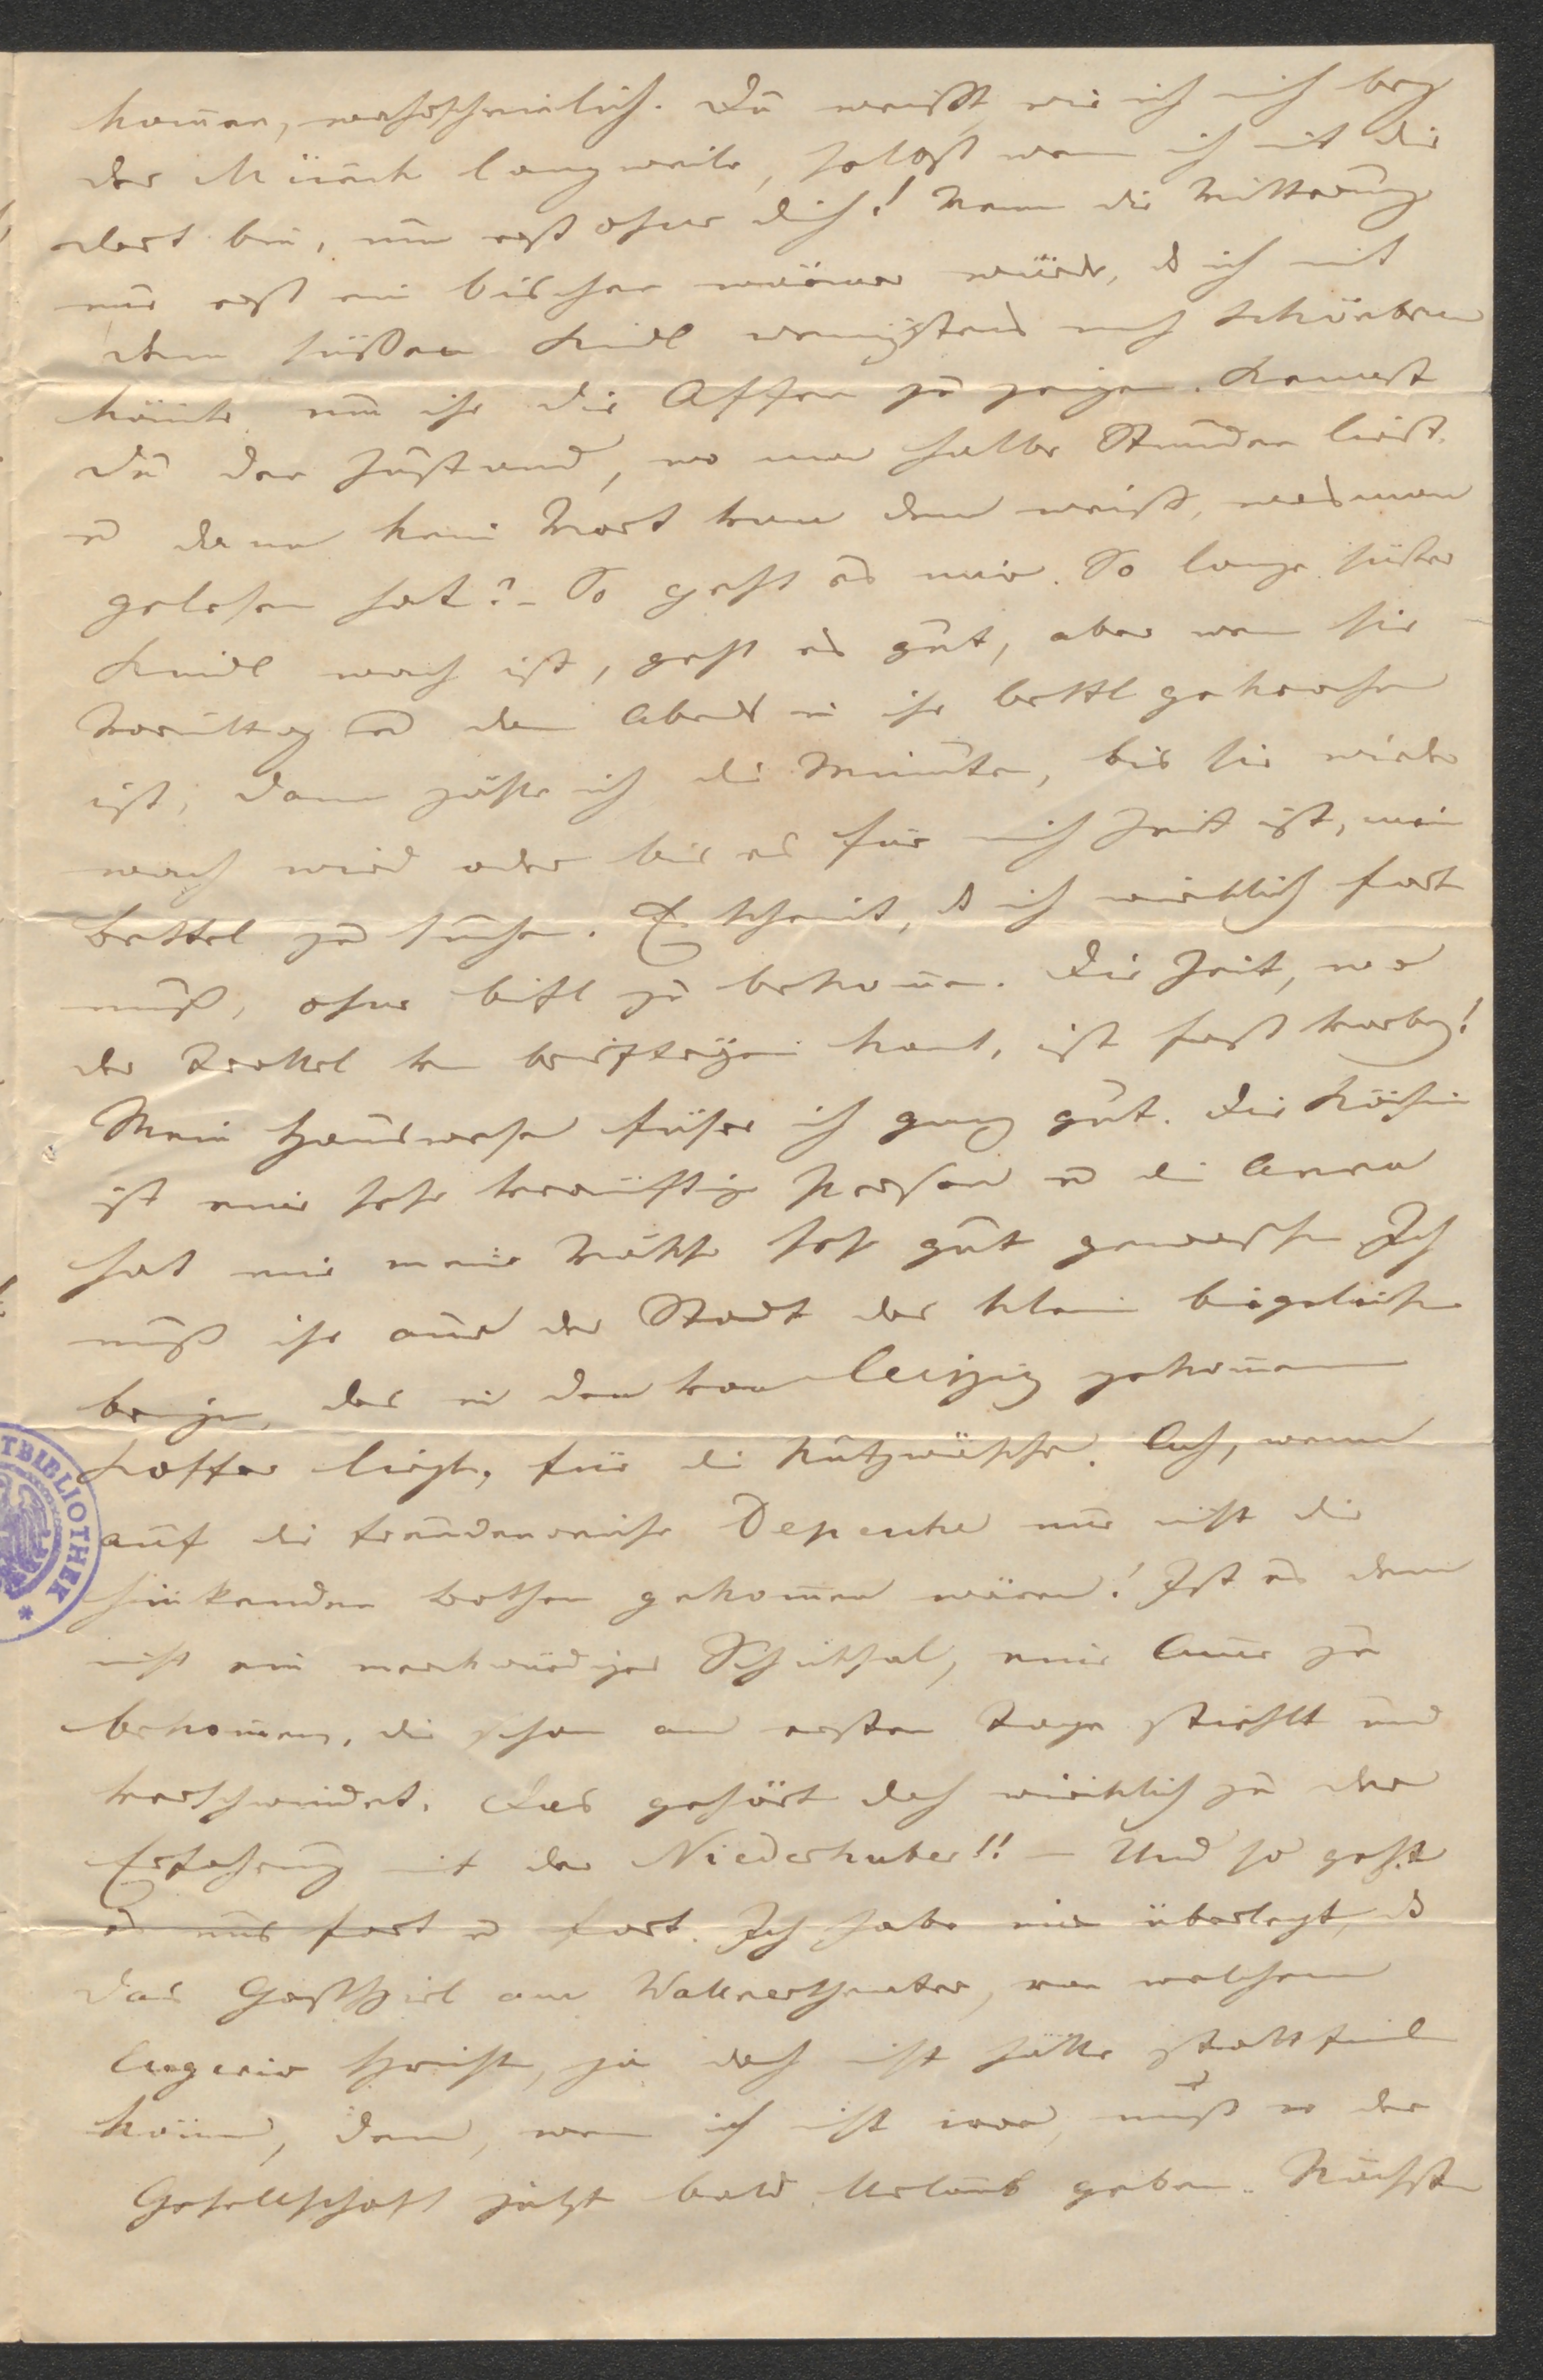 kom̄en, wahrscheinlich. Du weißt, wie ich mich bey
der Münch langweile, selbst wenn ich mit dir
dort bin, nun erst ohne dich! Wenn die Witterung
nur erst ein bischen wärmer würde, ds ich mit
dem süßen Kindl wenigstens nach Schönbrun
könnte um ihr die Affen zu zeigen. Kennst
du den Zustand, wo man halbe Stunden liest
u dann kein Wort von dem weiß, was man
gelesen hat? – So geht es mir. So lange süßes
Kindl wach ist, geht es gut, aber wenn sie
Vormittag u den Abend in ihr bettl gekrochen
ist, dann zähle ich die Minuten, bis sie wieder
wach wird oder bis es für mich Zeit ist, mein
bettel zu suchen. Es scheint, ds ich wirklich fort
muß, ohne bifl zu bekom̄en. Die Zeit, wo
der Trottel von kam, ist fast vorbey!
Mein Hauswesen führe ich ganz gut. Die Köchin
ist eine sehr vernünftige Person u die Anna
hat mir meine Wäsche sehr gut gewaschen. Ich
muß ihr aus der Stadt das kleine bügeleisen
bringen, das in dem von Leipzig gekom̄enen
Koffer liegt, für die Putzwäsche. Ach, wenn
auf die freudenreiche Depesche nur nicht die
hinkenden bothen gekom̄en wären! Ist es denn
nicht ein merkwürdiges Schicksal, eine Am̄e zu
bekom̄en, die schon am ersten Tage stiehlt und
verschwindet. Das gehört doch wirklich zu der
Erfahrung mit der Niederhuber!! – Und so geht
es uns fort u fort. Ich habe mir überlegt, ds
das Gastspiel am Wallnertheater, von welchem
Eugenie spricht, ja doch nicht hätte stattfinden
kön̄en, denn, wenn ich nicht irre, muß er der
Gesellschaft jetzt bald Urlaub geben. Nächsten
TBIBLIOTHEK